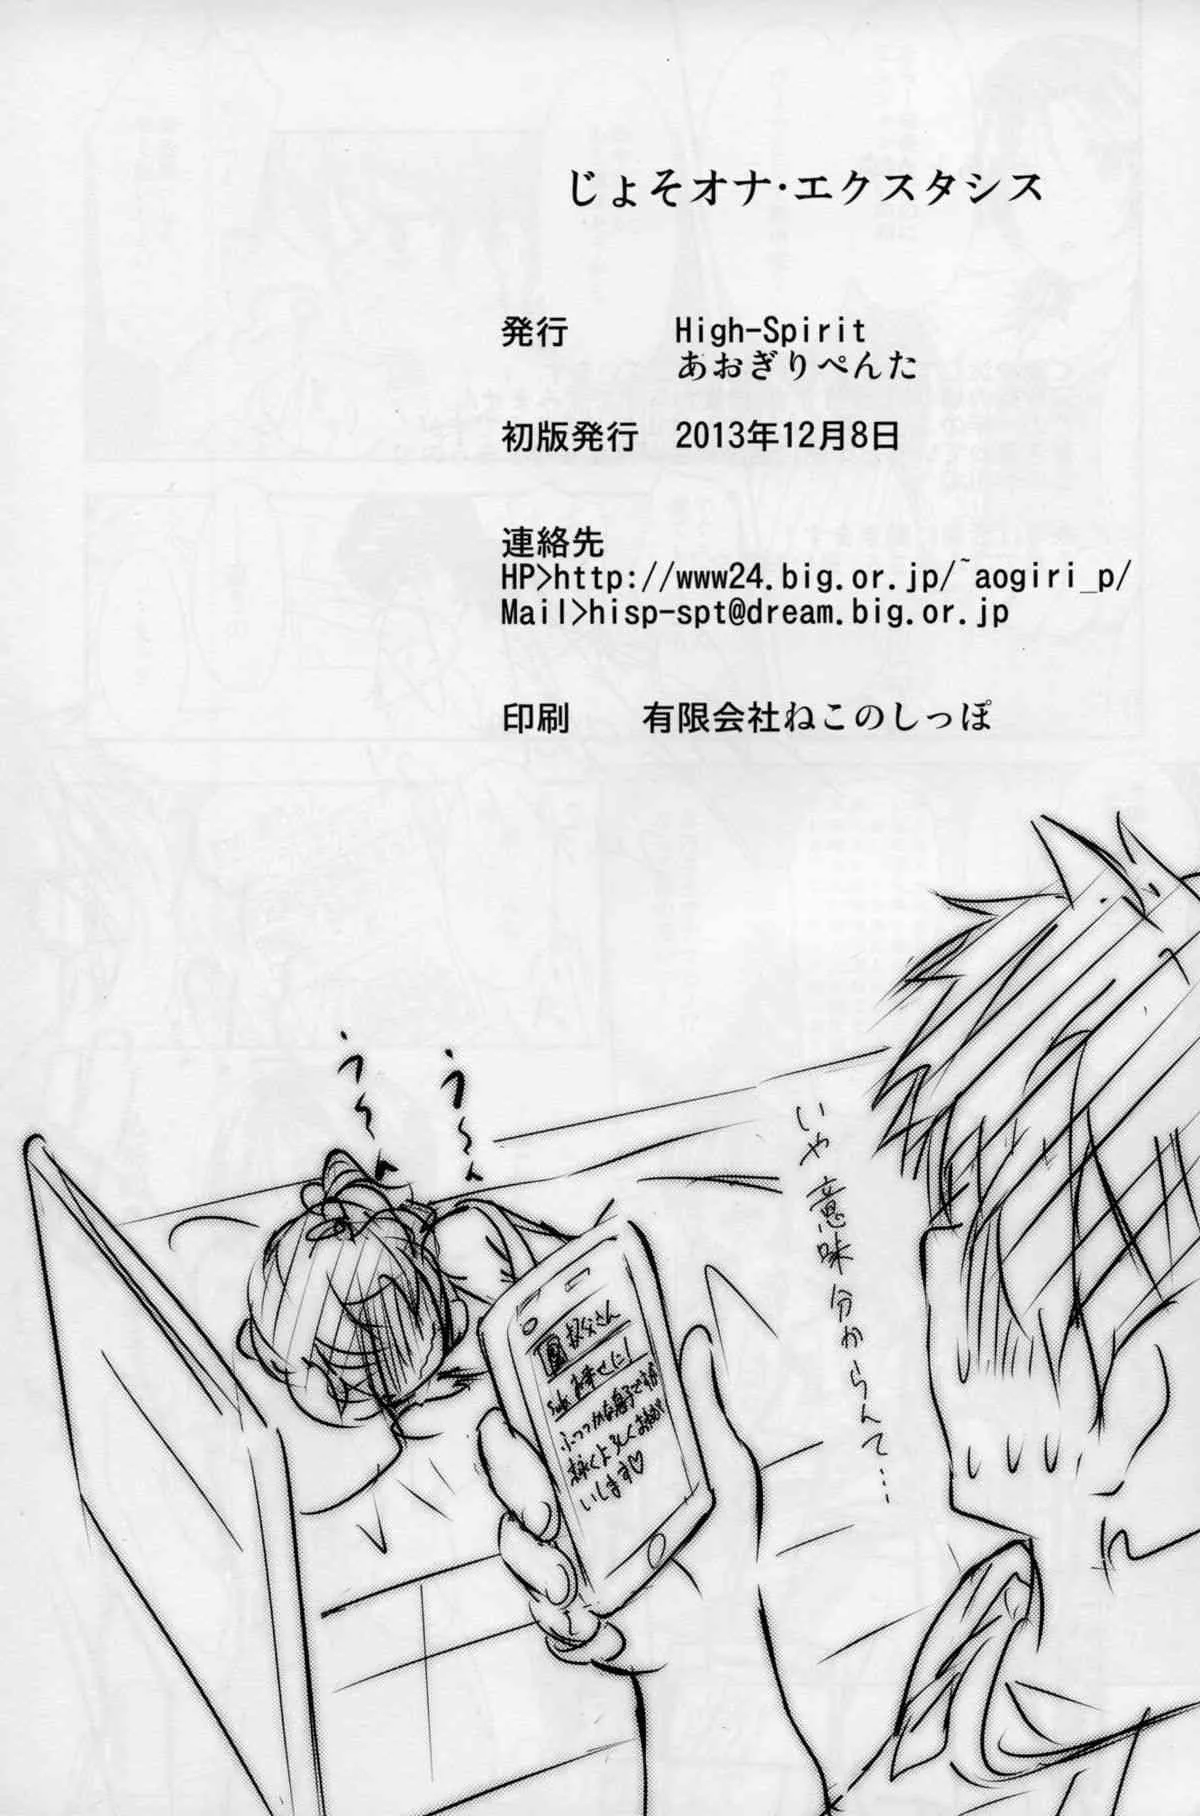 じょそオナ・エクスタシス
発行 High-Spirit
あおぎりぺんた
初版発行 2013年12月8日
連絡先
HP>http://www24.big.or.jp/~aogiri_p/
Mail>hisp-spt@dream.big.or.jp
印刷 有限会社ねこのしっぽ
いや意味分からんて…
う～ん
う～ん
叔父さん
Sub. お幸せに!
ふつつかな息子ですが
末永くよろしくお願
いします♡